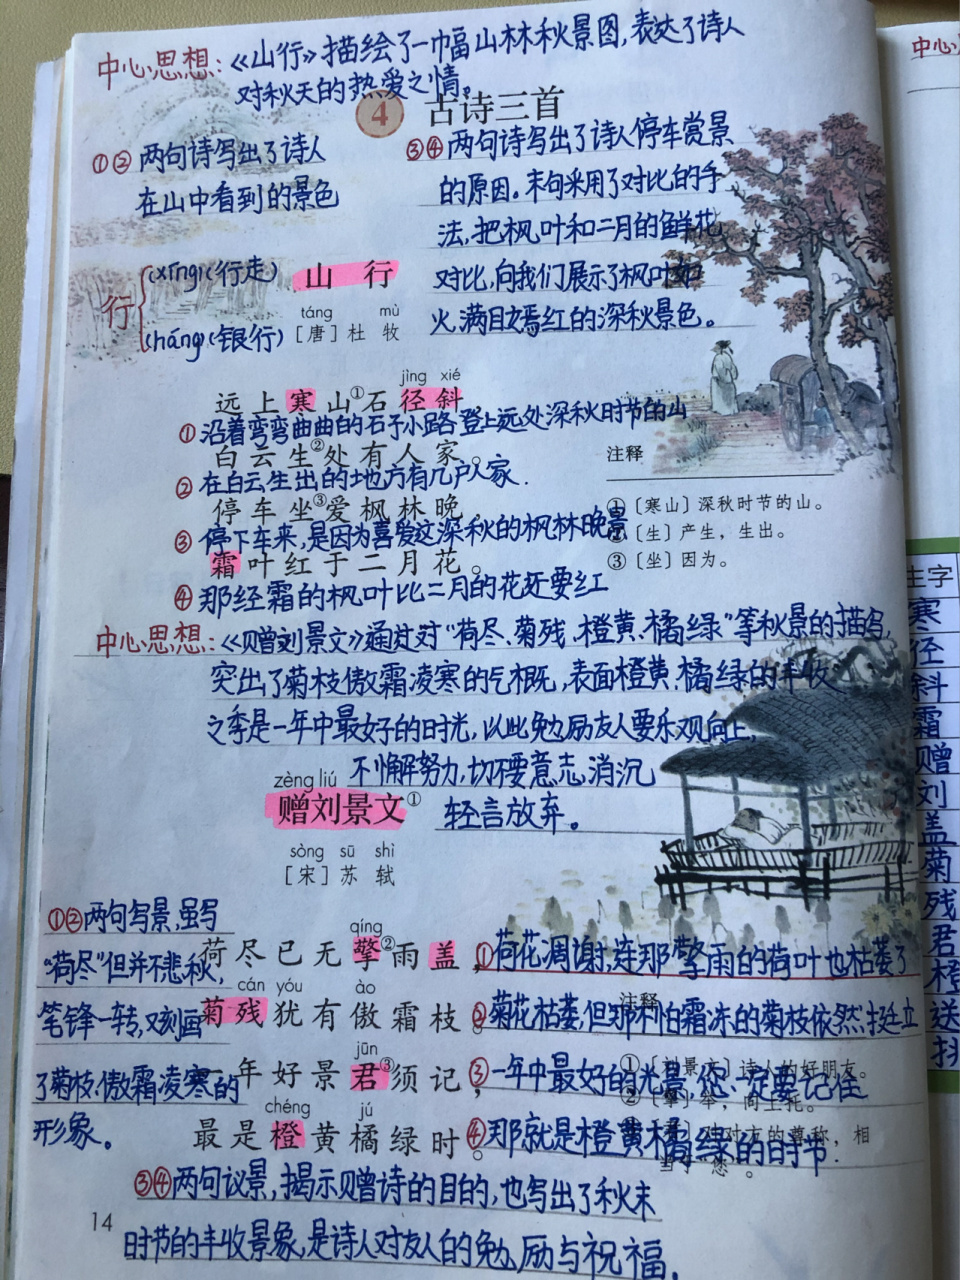 中心思想:《山行》描绘了一幅山林秋景图,表达了诗人
对秋天的热爱之情。
4 古诗三首
①②两句诗写出了诗人
在山中看到的景色
③④两句诗写出了诗人停车赏景
的原因。末句采用了对比的手
法,把枫叶和二月的鲜花
对比,向我们展示了枫叶如
火,满目嫣红的深秋景色。
行
(xíng)(行走)
(háng)(银行)
山 行
táng mù
[唐] 杜 牧
jìng xié
远上寒山①石径斜
①沿着弯弯曲曲的石子小路登上远处深秋时节的山
白云生②处有人家。
②在白云生出的地方有几户人家.
停车坐③爱枫林晚
③停下车来,是因为喜爱这深秋的枫林晚景
霜叶红于二月花。
④那经霜的枫叶比二月的花还要红
注释
①〔寒山〕深秋时节的山。
②〔生〕产生,生出。
③〔坐〕因为。
中心思想:《赠刘景文》通过对“荷尽、菊残、橙黄、橘绿”等秋景的描写,
突出了菊枝傲霜凌寒的气概,表面橙黄橘绿的丰收
之季是一年中最好的时光,以此勉励友人要乐观向上,
不懈努力,切不要意志消沉
轻言放弃。
zèng liú
赠刘景文①
sòng sū shì
[宋] 苏 轼
①②两句写景,虽写
“荷尽”但并不悲秋,
笔锋一转,又刻画
了菊枝傲霜凌寒的
形象。
qíng
荷尽已无擎②雨盖,
①荷花凋谢,连那擎雨的荷叶也枯萎了
cán yóu ào
菊残犹有傲霜枝。
②菊花枯萎,但那不怕霜冻的菊枝依然挺立
jūn
一年好景君③须记,
③一年中最好的光景,您一定要记住
chéng jú
最是橙黄橘绿时。
④那就是橙黄橘绿的时节
注释
①〔刘景文〕诗人的好朋友。
②〔擎〕举,向上托。
对对方的尊称,相
当于“您”。
③④两句议景,揭示赠诗的目的,也写出了秋末
时节的丰收景象,是诗人对友人的勉励与祝福。
14
中心
生字
寒
径
斜
霜
赠
刘
盖
菊
残
君
橙
送